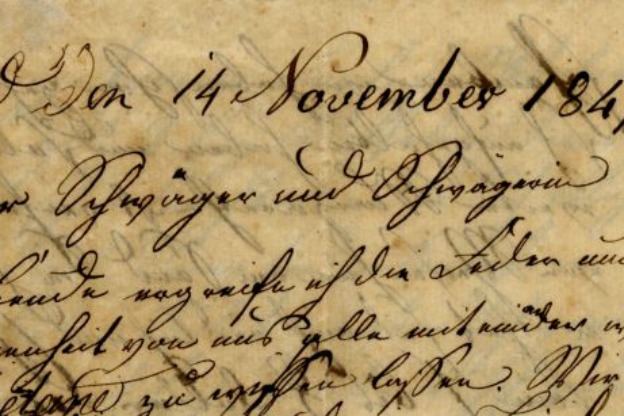 den 14 November 184
Schwäger und Schwägerin
ergreife ich die Feder und
von uns alle mit einander
zu wissen lassen. Wir